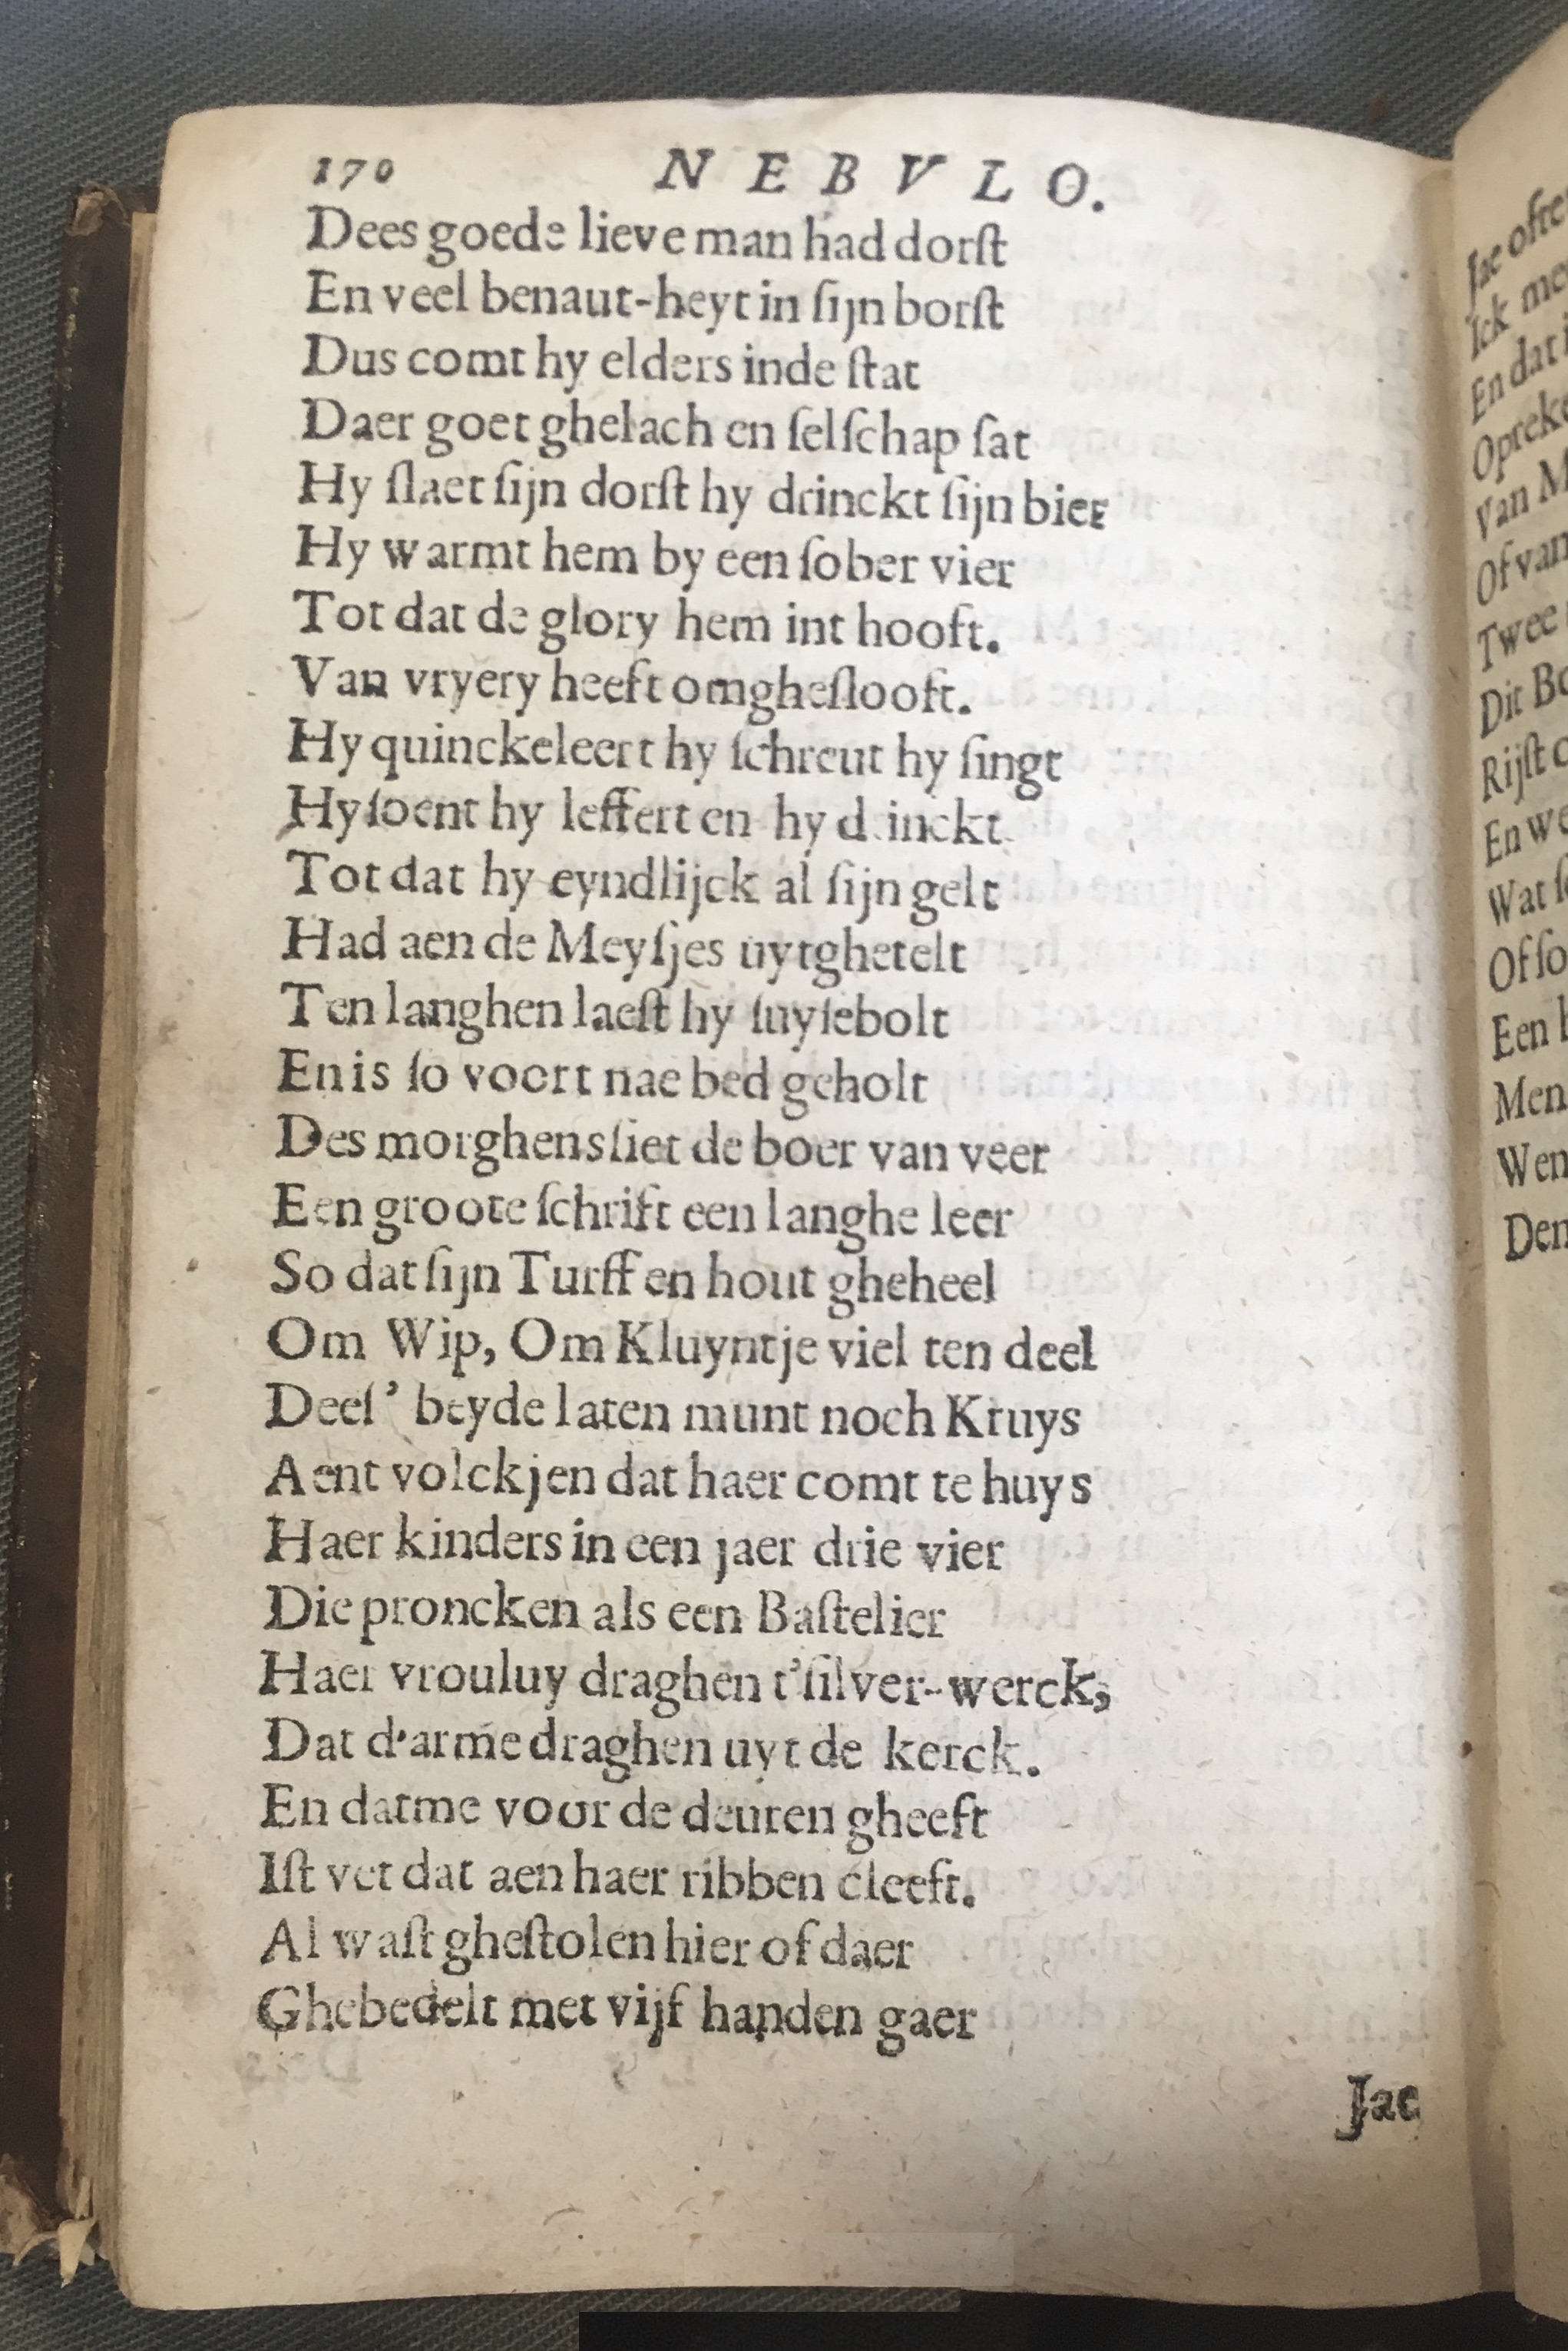 170 NEBVLO.
Dees goede lieve man had dorſt
En veel benaut-heyt in ſijn borſt
Dus comt hy elders inde ſtat
Daer goet ghelach en ſelſchap ſat
Hy ſlaet ſijn dorſt hy drinckt ſijn bier
Hy warmt hem by een ſober vier
Tot dat de glory hem int hooft.
Van vryery heeft omgheſlooft.
Hy quinckeleert hy ſchreut hy ſingt
Hy ſoent hy leffert en hy d inckt
Tot dat hy eyndlijck al ſijn gelt
Had aen de Meyſjes uytghetelt
Ten langhen laeſt hy ſuyſebolt
En is ſo voort nae bed geholt
Des morghens ſiet de boer van veer
Een groote ſchrift een langhe leer
So dat ſijn Turff en hout gheheel
Om Wip, Om Kluyntje viel ten deel
Deeſ' beyde laten munt noch Kruys
Aent volckjen dat haer comt te huys
Haer kinders in een jaer drie vier
Die proncken als een Baſtelier
Haer vrouluy draghen t'ſilver-werck,
Dat d'arme draghen uyt de kerck.
En datme voor de deuren gheeft
Iſt vet dat aen haer ribben cleeft.
Al waſt gheſtolen hier of daer
Ghebedelt met vijf handen gaer
Jae
Jae ofte
Ick
En dat
Van M
Of van
Twee
Dit Bo
Rijſt
En we
Wat
Of ſo
Een
Men
Wen
Den